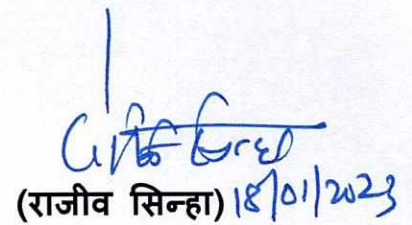 (राजीव सिन्हा) 18/01/2023